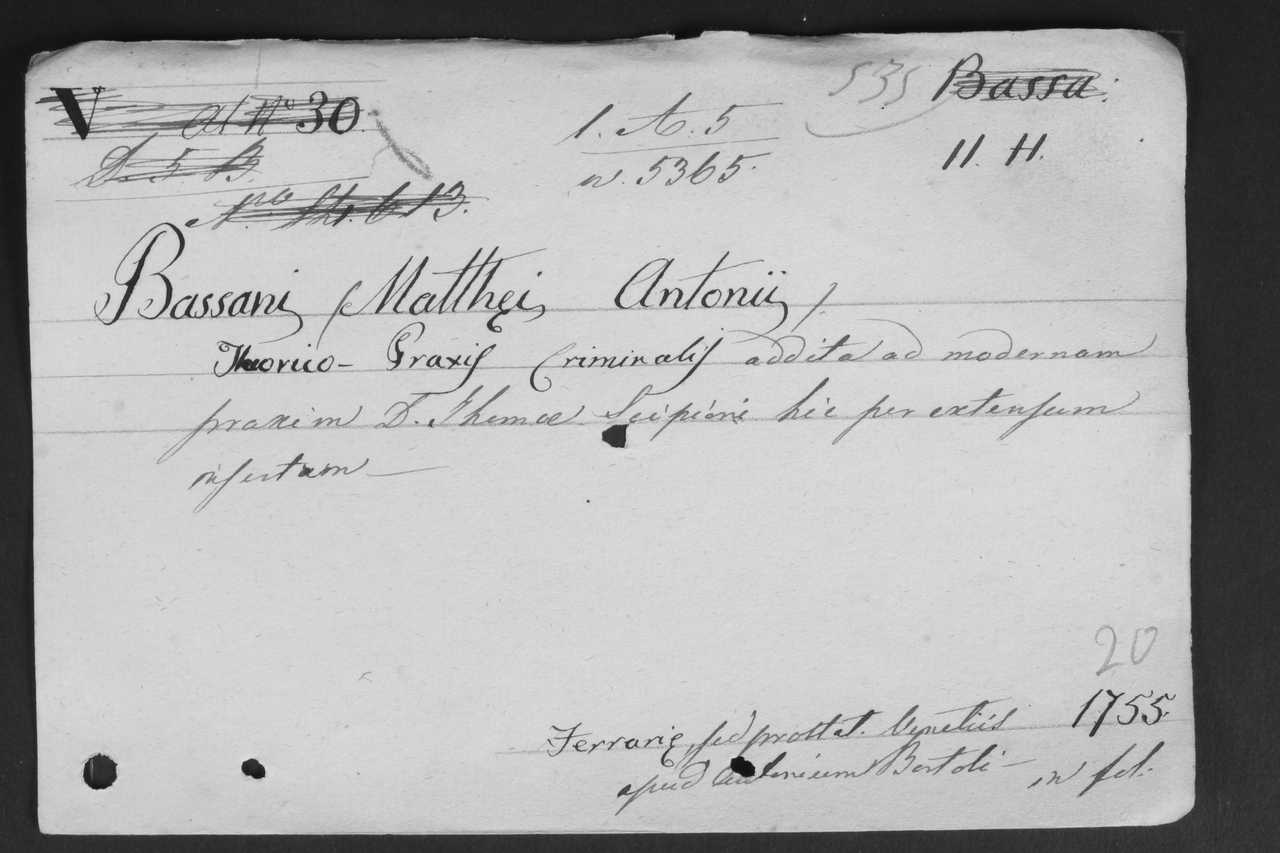 V ad N° 30.
535
Bassa:
D. 5 B
1. A. 5
n. 5365.
11. H.
N.ro 13.
Bassani (Matthęi Antonii)
Theorico - Praxis Criminalis addita ad modernam
praxim D. Thomæ Scipioni hic per extensum
insertam —
20
Ferrarię, sed prostat. Venetiis 1755.
apud Antonium Bortoli — in fol.